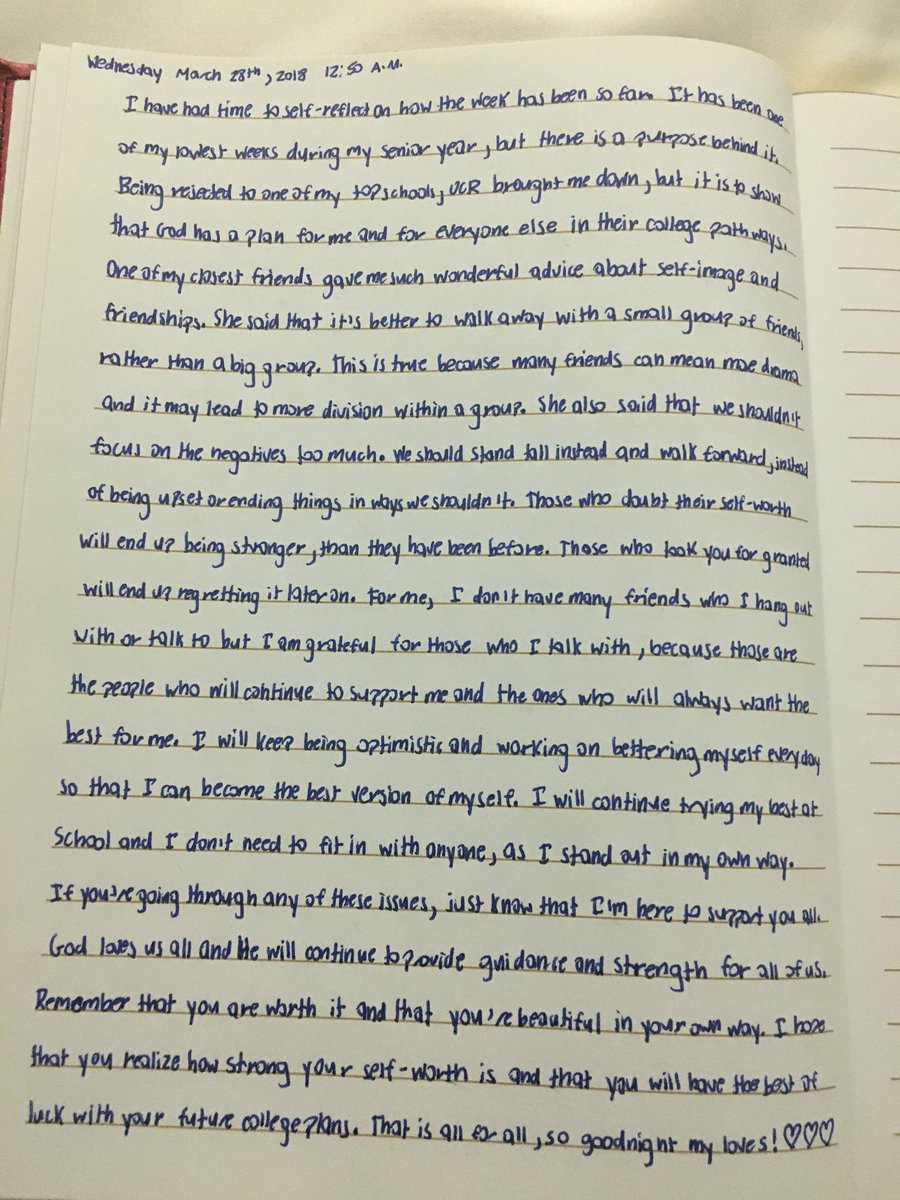 Wednesday March 28th, 2018 12:50 A.M.
I have had time to self-reflect on how the week has been so far. It has been one
of my lowest weeks during my senior year, but there is a purpose behind it.
Being rejected to one of my top schools, UCR brought me down, but it is to show
that God has a plan for me and for everyone else in their college pathways.
One of my closest friends gave me such wonderful advice about self-image and
friendships. She said that it's better to walk away with a small group of friends,
rather than a big group. This is true because many friends can mean moe drama
and it may lead to more division within a group. She also said that we shouldn't
focus on the negatives too much. We should stand tall instead and walk forward, instead
of being upset or ending things in ways we shouldn't. Those who doubt their self-worth
will end up being stronger, than they have been before. Those who took you for granted
will end up regretting it later on. For me, I don't have many friends who I hang out
with or talk to but I am grateful for those who I talk with, because those are
the people who will continue to support me and the ones who will always want the
best for me. I will keep being optimistic and working on bettering myself everyday
so that I can become the best version of myself. I will continue trying my best at
School and I don't need to fit in with anyone, as I stand out in my own way.
If you're going through any of these issues, just know that I'm here to support you all.
God loves us all and He will continue to provide guidance and strength for all of us.
Remember that you are worth it and that you're beautiful in your own way. I hope
that you realize how strong your self-worth is and that you will have the best of
luck with your future college plans. That is all for all, so goodnight my loves! ♡♡♡